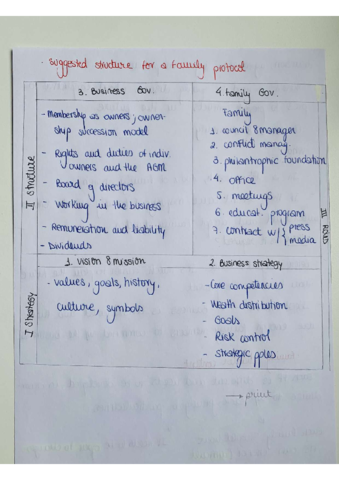 · Suggested structure for a family protocol
3. Business Gov.
- Membership as owners; owner-
ship succession model
- Rights and duties of indiv.
owners and the AGM
- Board of directors
- Working in the business
- Remuneration and liability
- Dividends
4. Family Gov.
Family
1. council & manager
2. conflict manag.
3. philanthropic foundation
4. office
5. meetings
6. educat. program
7. contract w/ { press
media
II Structure
III
1. Vision & mission
- values, goals, history,
culture, symbols
2. Business strategy
- Core competencies
- Wealth distribution
- Goals
- Risk control
- Strategic
I Strategy
→